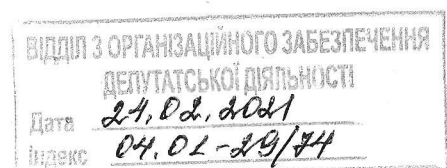 ВІДДІЛ З ОРГАНІЗАЦІЙНОГО ЗАБЕЗПЕЧЕННЯ
ДЕПУТАТСЬКОЇ ДІЯЛЬНОСТІ
Дата 24.02.2021
Індекс 04.01-29/74